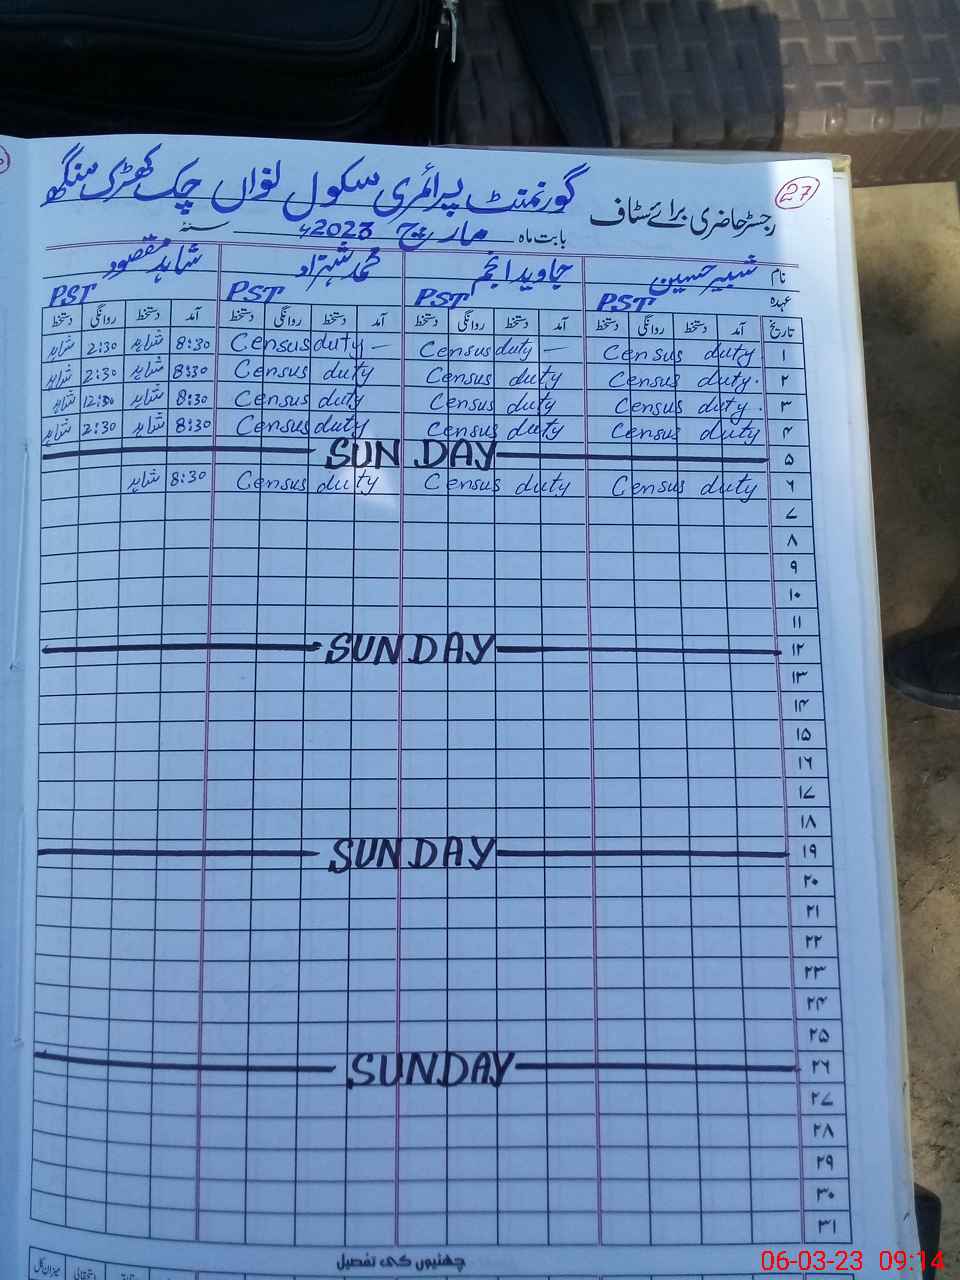 27
گورنمنٹ پرائمری سکول نواں چک کھڑک سنگھ
رجسٹر حاضری برائے سٹاف بابت ماہ مارچ 2023ء سنہ
نام شبیر حسین جاوید انجم محمد شہزاد شاہد مقصود
عہدہ PST PST PST PST
تاریخ آمد دستخط روانگی دستخط آمد دستخط روانگی دستخط آمد دستخط روانگی دستخط آمد دستخط روانگی دستخط
۱ Census duty Census duty — Census duty — 8:30 شاہد 2:30 شاہد
۲ Census duty. Census duty Census duty 8:30 شاہد 2:30 شاہد
۳ Census duty. Census duty Census duty 8:30 شاہد 12:30 شاہد
۴ Census duty Census duty Census duty 8:30 شاہد 2:30 شاہد
۵ SUNDAY
۶ Census duty Census duty Census duty 8:30 شاہد
۷
۸
۹
۱۰
۱۱
۱۲ SUNDAY
۱۳
۱۴
۱۵
۱۶
۱۷
۱۸
۱۹ SUNDAY
۲۰
۲۱
۲۲
۲۳
۲۴
۲۵
۲۶ SUNDAY
۲۷
۲۸
۲۹
۳۰
۳۱
چھٹیوں کی تفصیل
میزان کل استحقاقی
06-03-23 09:14